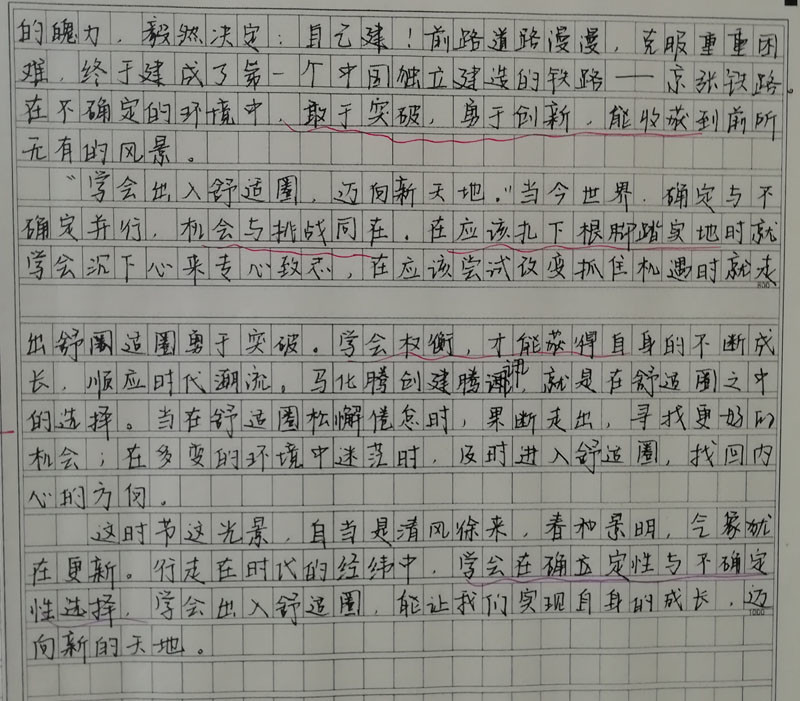 的魄力，毅然决定：自己建！前路道路漫漫，克服重重困
难，终于建成了第一个中国独立建造的铁路——京张铁路。
在不确定的环境中，敢于突破，勇于创新，能收获到前所
无有的风景。
“学会出入舒适圈，迈向新天地。”当今世界，确定与不
确定并行，机会与挑战同在。在应该扎下根脚踏实地时就
学会沉下心来专心致志，在应该尝试改变抓住机遇时就走
800
出舒圈适圈勇于突破。学会权衡，才能获得自身的不断成
长，顺应时代潮流。马化腾创建腾讯，就是在舒适圈之中
的选择。当在舒适圈松懈倦怠时，果断走出，寻找更好的
机会；在多变的环境中迷茫时，及时进入舒适圈，找回内
心的方向。
这时节这光景，自当是清风徐来，春和景明，气象犹
在更新。行走在时代的经纬中，学会在确立定性与不确定
性选择，学会出入舒适圈，能让我们实现自身的成长，迈
1000
向新的天地。